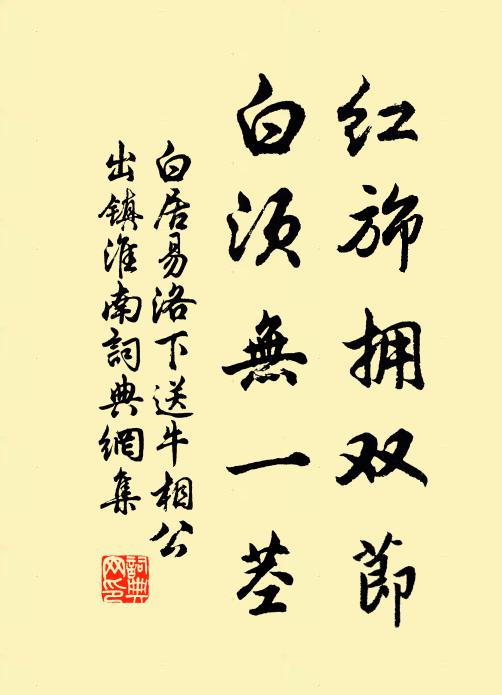 红旆拥双節
白须無一茎
白居易洛下送牛相公
出镇淮南詞典網集
詞典网印